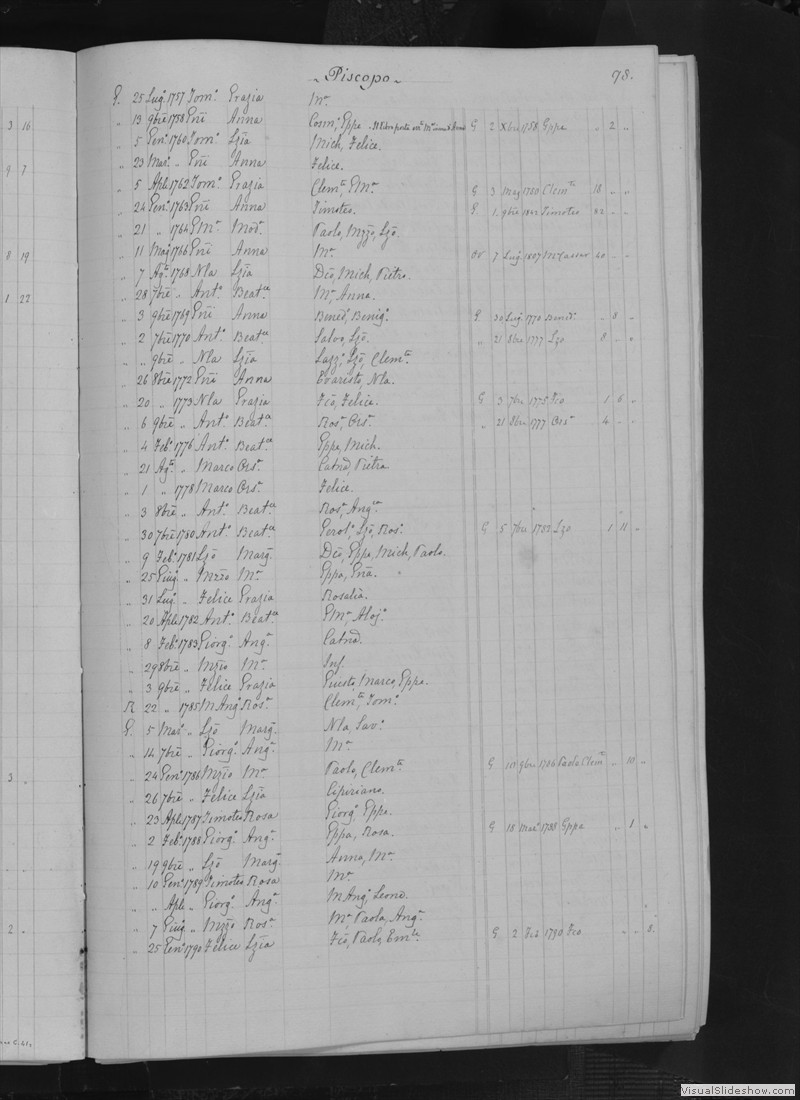 Piscopo 78.
G. 25 Lug.º 1757 Dom.º Grazia M.ª
" 13 9bre 1758 Gñi Anna Cosm.º, Gppe G 2 Xbre 1758 Gppe " 2 "
3 16
" 5 Gen.º 1760 Dom.º Lzīa Mich, Felice.
" 23 Mar.º " Gñi Anna Felice.
9 7
" 5 Aple 1762 Dom.º Grazia Clem.te G M.ª G 3 Mag 1780 Clem.te 18 " "
" 24 Gen.º 1763 Gñi Anna Timoteo. G. 1. 9bre Timoteo " "
" 21 " 1764 G M.ª Paolo, Mzzo, Lzō.
" 11 Mag 1766 Gñi Anna M.ª 7 Lug 1807 M.ª Cassar 40 " "
8 19
" 7 Ag.º 1768 Nla Lzīa Dcō, Mich, Pietro.
" 28 7bre " Ant.º Beat.ce M.ª, Anna.
1 22
" 3 9bre 1769 Gñi Anna Bened.º, Benig.º G. 30 Lug 1770 Bened.º " 8 "
" 2 7bre 1770 Ant.º Beat.ce Salvo, Lzō. " 21 8bre 1777 Lzo 8 " "
" " 9bre " Nla Lzīa Lazz.º, Lzō, Clem.te
" 26 8bre 1772 Gñi Anna Evaristo, Nla.
" 20 " 1773 Nla Grazia Fcō, Felice. G 3 7bre 1775 Fco 1 6 "
" 6 9bre " Ant.º Beat.ce Ros.ª, Ors.ª " 21 8bre 1777 Ors.ª 4 " "
" 4 Feb.º 1776 Ant.º Beat.ce Gppe, Mich.
" 21 Ag.º " Marco Ors.ª Catnā, Pietra
" 1 " 1778 Marco Ors.ª Felice.
" 3 8bre " Ant.º Beat.ce Ros.ª, Ang.ca
" 30 7bre 1780 Ant.º Beat.ce Gerol.º, Lzō, Ros.º G 5 7bre 1782 Lzo 1 11 "
" 9 Feb.º 1781 Lzō Marg.ª Dcō, Gppe, Mich, Paolo.
" 25 Giug.º " Mzzo M.ª Gppa, Gña.
" 31 Lug.º " Felice Grazia Rosalia.
" 20 Aple 1782 Ant.º Beat.ce G M.ª, Aloj.º
" 8 Feb.º 1783 Giorg.º Ang.ª Catnā.
" 29 8bre " Mzzo M.ª Inf.
" 3 9bre " Felice Grazia Giusto, Marco, Gppe.
R 22 " 1785 M Ang.º Ros.ª Clem.te, Dom.º
G. 5 Mar.º " Lzō Marg.ª Nla, Sav.º
" 14 7bre " Giorg.º Ang.ª M.ª
" 24 Gen.º 1786 Mzzo M.ª Paolo, Clem.te G 9bre 1786 Paolo Clem.te " 10 "
3 "
" 26 7bre " Felice Lzīa Cipriano.
" 23 Aple 1787 Timoteo Rosa Giorg.º Gppe.
" 2 Feb.º 1788 Giorg.º Ang.ª Gppa, Rosa. G 18 Mar.º 1788 Gppa " 1 "
" 19 9bre " Lzō Marg.ª Anna, M.ª
" 10 Gen.º 1789 Timoteo Rosa M.ª
" " Aple " Giorg.º Ang.ª M Ang.º Leond.
" 7 Giug.º " Mzzo Ros.ª M.ª Paola, Ang.ª
2 "
" 25 Gen.º 1790 Felice Lzīa Fcō, Paolo, Em.le G 2 Feb 1790 Fco. " " 8.
VisualSlideshow.com